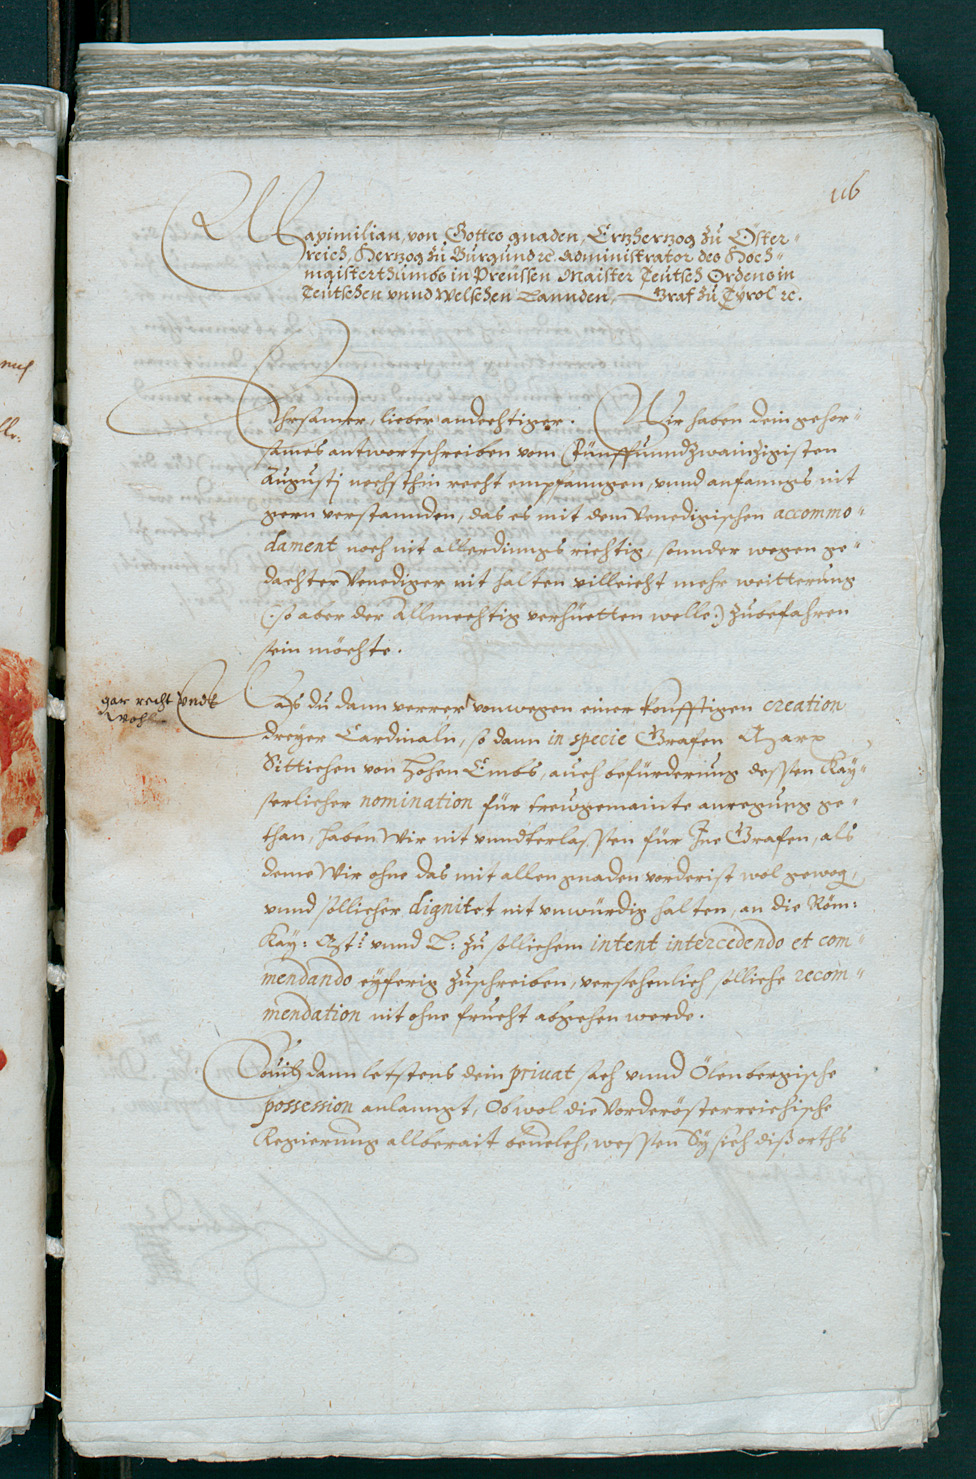 116
Maximilian, von Gottes gnaden, Ertzhertzog zu Öster-
reich, Hertzog zu Burgund ec Administrator des Hoch-
maisterthumbs in Preussen Maister Teutsch Ordens in
Teutschen vnnd Welschen Lannden, Graf zu Tyrol ec.
Ehrsamer, lieber andechtiger. Wir haben dein gehor-
sames antwortschreiben vom Fünffunndzwainzigisten
Augustj nechsthin recht empfanngen, vnnd anfanngs nit
gern verstannden, das es mit dem Venedigischen accommo-
dament noch nit allerdinngs richtig, sonnder wegen ge-
dachter Venediger nit halten villeicht mehr weitterung
(:so aber der Allmechtig verhüetten welle:) zubefahren
sein möchte.
gar recht vndt
wohl
Das du dann verrer vonwegen einer könfftigen creation
dreyer Cardinaln, so dann in specie Grafen Marx
Sittichen von Hohen Embs, auch befürderung dessen Kay-
serlicher nomination für trewgemainte anregung ge-
than, haben Wir nit vnndterlassen für Ine Grafen, als
deme Wir ohne das mit allen gnaden vorderist wol gewog,
vnnd sollicher dignitet nit vnwürdig halten, an die Röm:
Kay: Mt: vnnd L: zu sollichem intent intercedendo et com-
mendando eyferig zuschreiben, versehenlich solliche recom-
mendation nit ohne frucht abgehen werde.
Souil dann letstens dein priuat sach vnnd Ölenbergische
possession anlanngt, Ob wol die Vorderösterreichische
Regierung allberait beuelch, wessen Sy sich diß orths